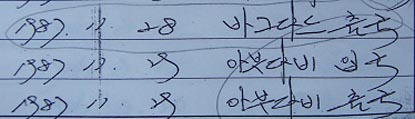 1987. 11. 28 바그다드 출국
1987. 11. 29 아부다비 입국
1987. 11. 29 아부다비 출국